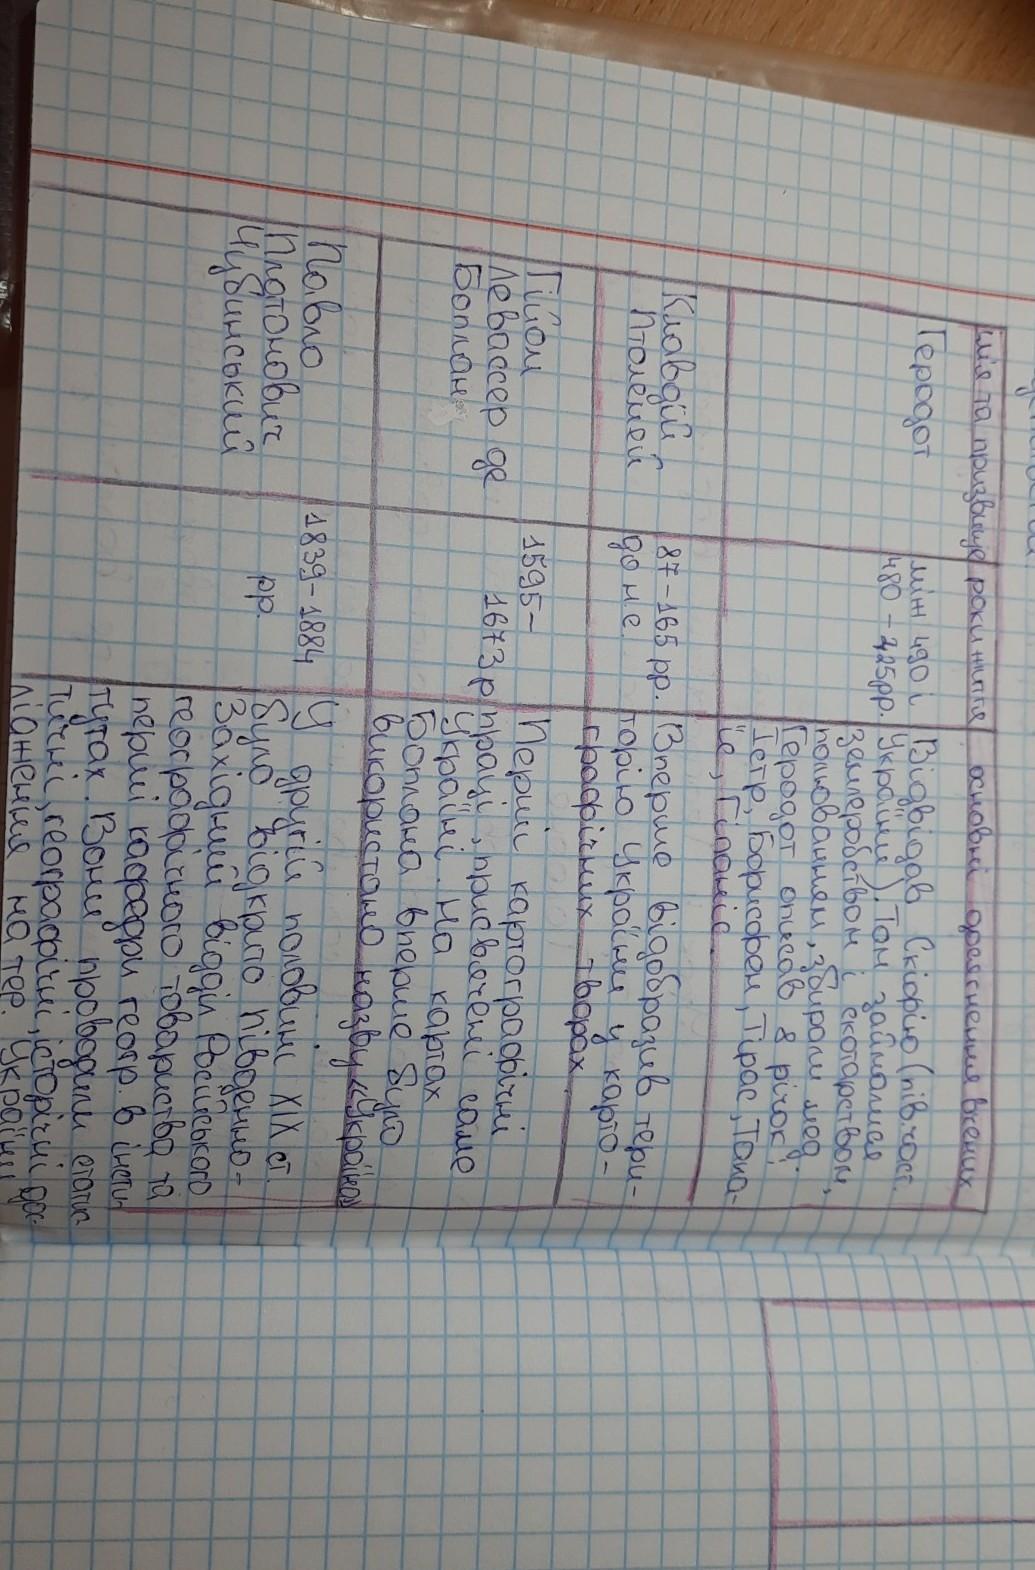 ім'я та прізвище роки життя основні досягнення вчених
Геродот
між 490 і
480 - 425рр.
Відвідав Скіфію (півд. част.
України). Там займалися
землеробством і скотарством,
полюванням, збирали мед.
Геродот описав 8 річок:
Істр, Борисфен, Тірас, Тана-
їс, Гіпаніс.
Клавдій
Птолемей
87-165 рр.
до н.е.
Вперше відобразив тери-
торію України у карто-
графічних творах
Гійом
Левассер де
Боплан
1595-
1673р
Перші картографічні
праці, присвячені саме
Україні. На картах
Боплана вперше було
використано назву «Україна»
Павло
Платонович
Чубинський
1839-1884
рр.
У другій половині XIX ст.
було відкрито Південно-
Західний відділ Російського
географічного товариства та
перші кафедри геогр. в інсти-
тутах. Вони проводили статис
тичні, географічні, історичні дос-
лідження на тер. України